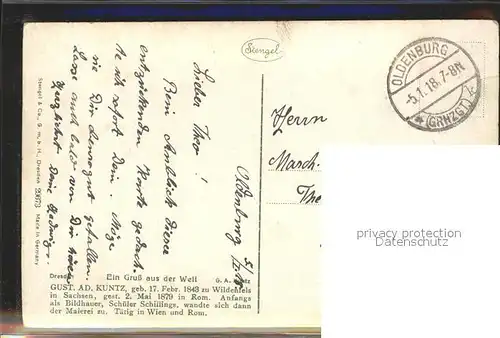 Stengel
OLDENBURG
-5.1.18.7-8N
* (GRHZGT.) k
Oldenburg 5/1. 18
Lieber Theo!
Beim Anblick dieser
entzückenden Karte gedach-
te ich sofort Dein. Möge
sie Dir besonders gut gefallen.
Lasse auch bald von Dir hören
Herzlichst Deine Hedwig.
Herrn
Masch.
The
Stengel & Co., G. m. b. H., Dresden 29873 Made in Germany
Dresden Ein Gruß aus der Welt G. A.
GUST. AD. KUNTZ, geb. 17. Febr. 1843 zu Wildenfels
in Sachsen, gest. 2. Mai 1879 in Rom. Anfangs
als Bildhauer, Schüler Schillings, wandte sich dann
der Malerei zu. Tätig in Wien und Rom.
privacy protection
www.ansichtskartenversand.com